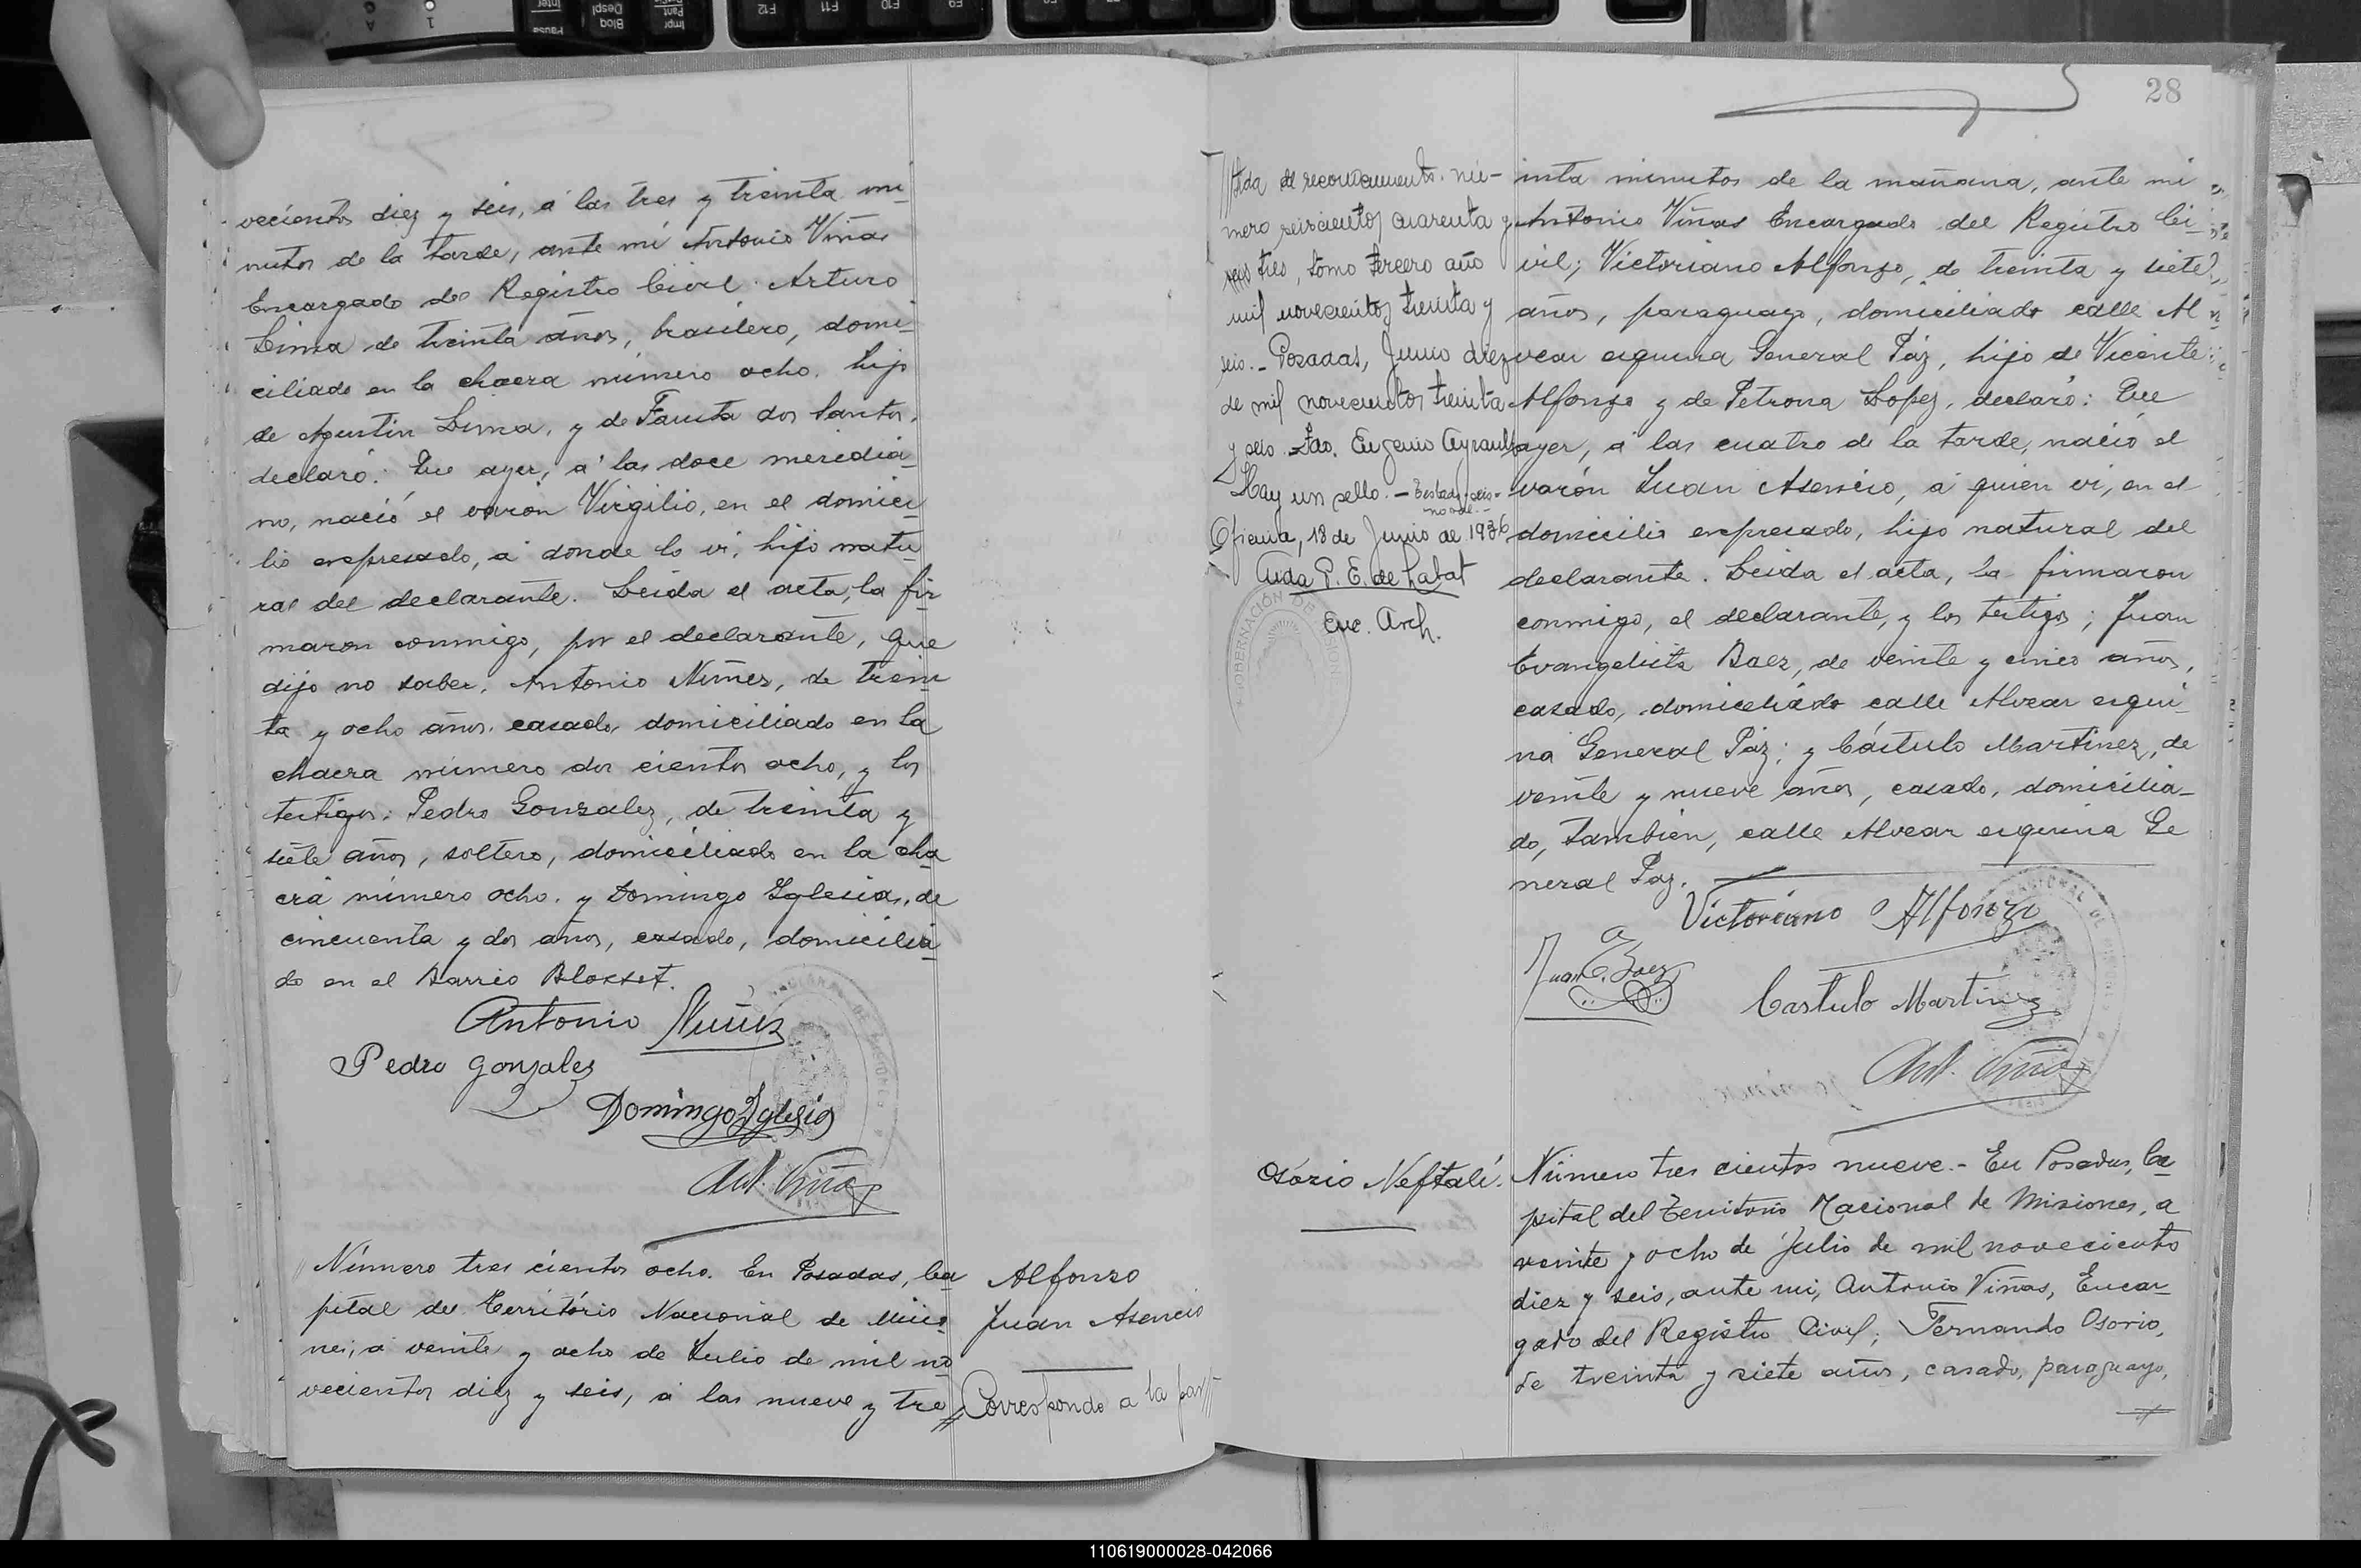 vecientos diez y seis, á las tres y treinta mi
nutos de la tarde, ante mí Antonio Viñas
Encargado del Registro Civil. Arturo
Lima de treinta años, brasilero, domi-
ciliado en la chacra número ocho. hijo
de Agustin Lima, y de Fausta dos Santos,
declaró: Que ayer, a' las doce meridia-
no, nació el varón Virgilio, en el domici-
lio expresado, a' donde lo ví, hijo natu-
ral del declarante. Leida el acta, la fir-
maron conmigo, por el declarante, que
dijo no saber, Antonio Nuñez, de trein-
ta y ocho años, casado, domiciliado en la
chacra número dos cientos ocho, y los
testigos: Pedro Gonzalez, de treinta y
siete años, soltero, domiciliado en la cha-
cra número ocho. y Domingo Yglesias, de
cincuenta y dos años, casado, domicilia-
do en el Barrio Blosset.
Antonio Nuñez
Pedro Gonzalez
Domingo Yglesia
Ant. Viñas
Número tres cientos ocho. En Posadas, Ca-
pital del Território Nacional de Misio-
nes, a veinte y ocho de Julio de mil no-
vecientos diez y seis, a las nueve y tre
Alfonzo
Juan Asencio
Corresponde a la par
28
tida de reconocimiento nú-
mero seiscientos cuarenta y
seis tres, tomo tercero año
mil novecientos treinta y
seis.- Posadas, Junio diez
de mil novecientos treinta
y seis. Fdo. Eugenio Ayrault
Hay un sello. - Testado: seis-
no vale.-
Oficina, 18 de Junio de 1936
Aida P. E. de Labat
Enc. Arch.
GOBERNACIÓN DE MISIONES
inta minutos de la mañana, ante mi
Antonio Viñas Encargado del Registro Ci-
vil; Victoriano Alfonzo, de treinta y siete
años, paraguayo, domiciliado calle Al
vear esquina General Páz, hijo de Vicente
Alfonzo y de Petrona Lopez, declaró: Que
ayer, a' las cuatro de la tarde, nació el
varón Juan Asencio, a' quien ví, en el
domicilio expresado, hijo natural del
declarante. Leida el acta, la firmaron
conmigo, el declarante, y los testigos; Juan
Evangelista Baez, de veinte y cinco años,
casado, domiciliado calle Alvear esqui-
na General Páz; y Cástulo Martinez, de
veinte y nueve años, casado, domicilia-
do, también, calle Alvear esquina Ge
neral Paz.
Victoriano Alfonzo
Juan E. Baez
Castulo Martinez
Ant. Viñas
Osório Neftalí.
Número tres cientos nueve.- En Posadas, Ca-
pital del Territorio Nacional de Misiones, a
veinte y ocho de Julio de mil novecientos
diez y seis, ante mi, Antonio Viñas, Encar-
gado del Registro Civil; Fernando Osorio,
de treinta y siete años, casado, paraguayo,
110619000028-042066